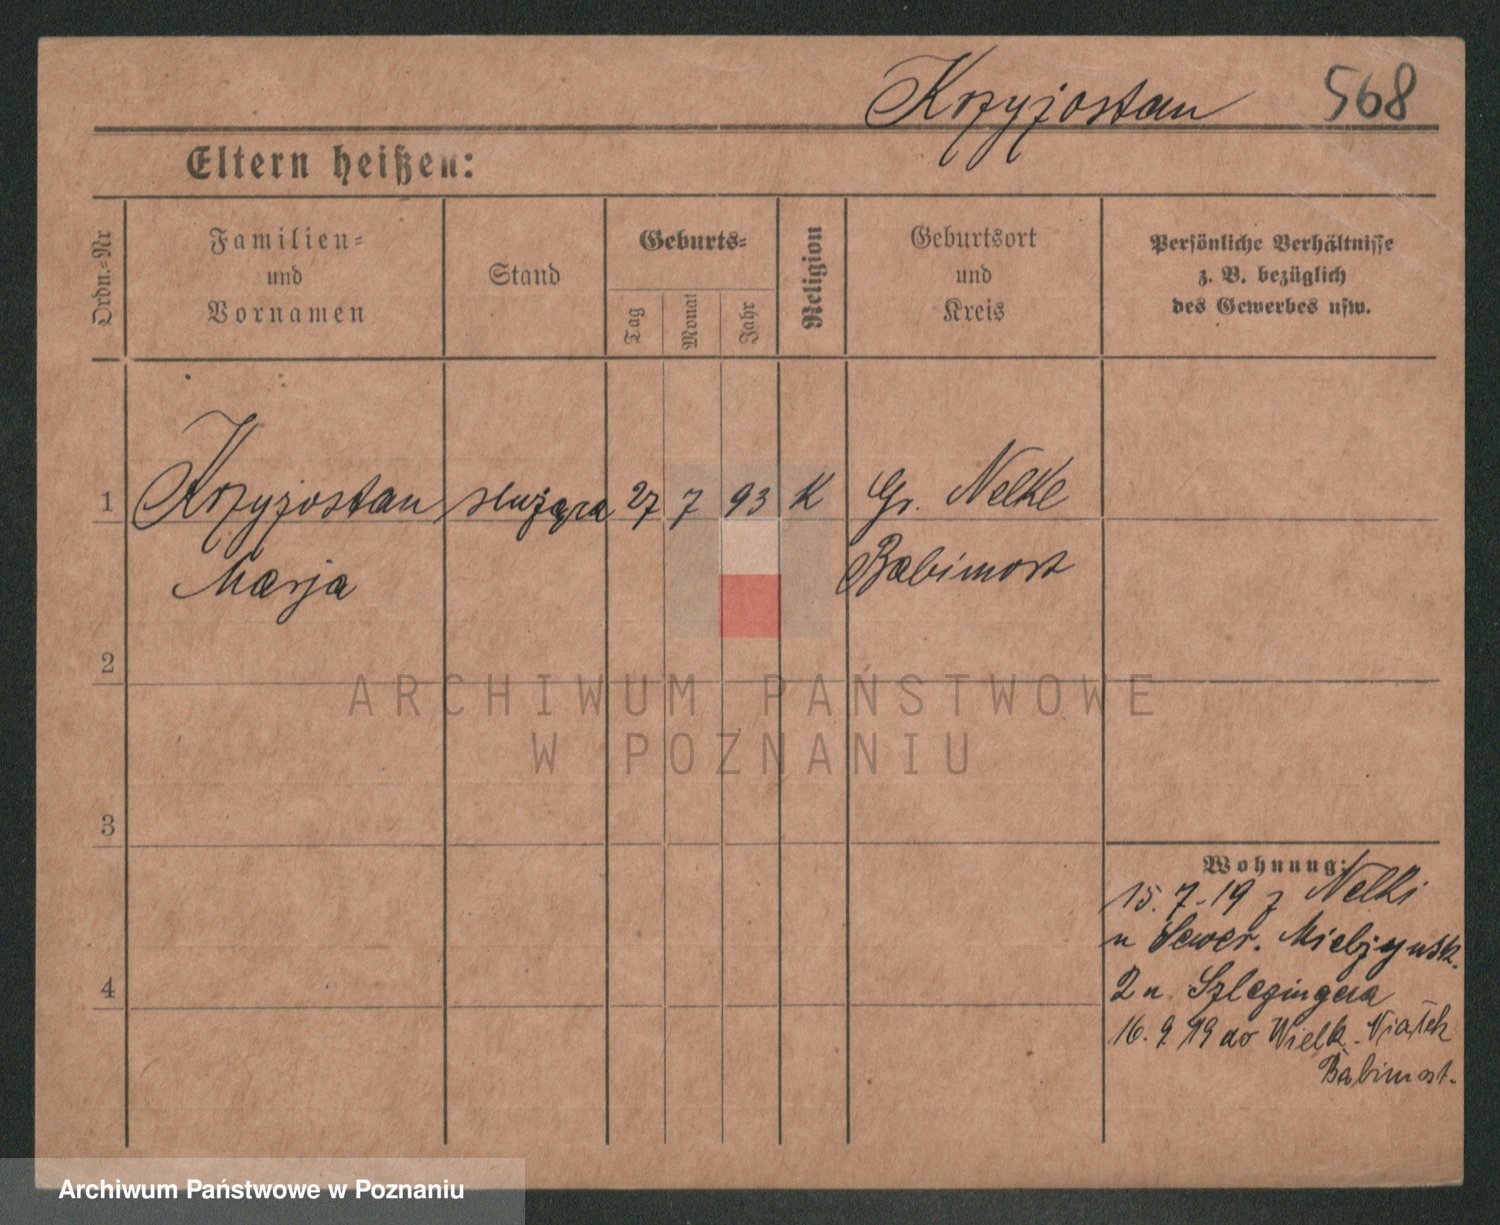 Krzyżostan 568
Eltern heißen:
Ordn.=Nr
Familien=
und
Vornamen
Stand
Geburts=
Tag
Monat
Jahr
Religion
Geburtsort
und
Kreis
Persönliche Verhältnisse
z. B. bezüglich
des Gewerbes usw.
1 Krzyżostan służąca 27 7 93 K Gr. Nelke
Marja Babimost
2
ARCHIWUM PAŃSTWOWE
W POZNANIU
3
Wohnung:
15.7.19 z Nelki
u Sewer. Mielżyńsk.
2 u Szlagingera
4
16.9.19 do Wielk.
Babimost.
Archiwum Państwowe w Poznaniu